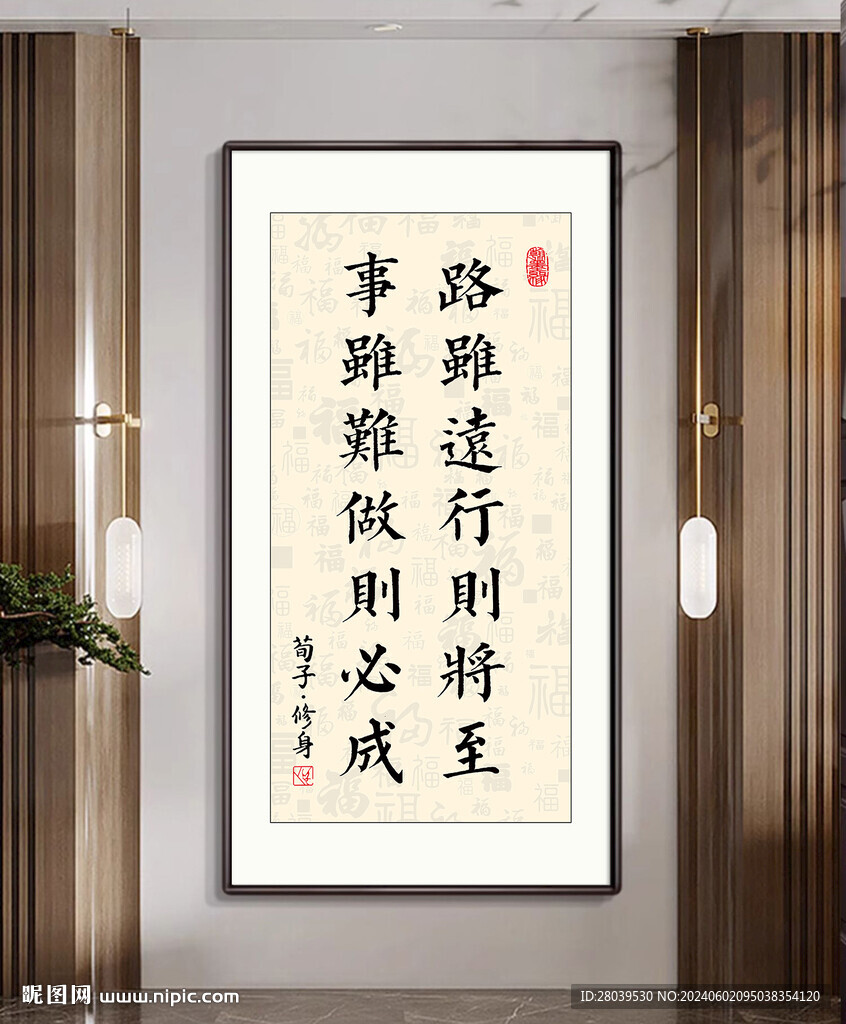 路雖遠行則將至
事雖難做則必成
荀子·修身
昵图网 www.nipic.com
ID:28039530 NO:20240602095038354120